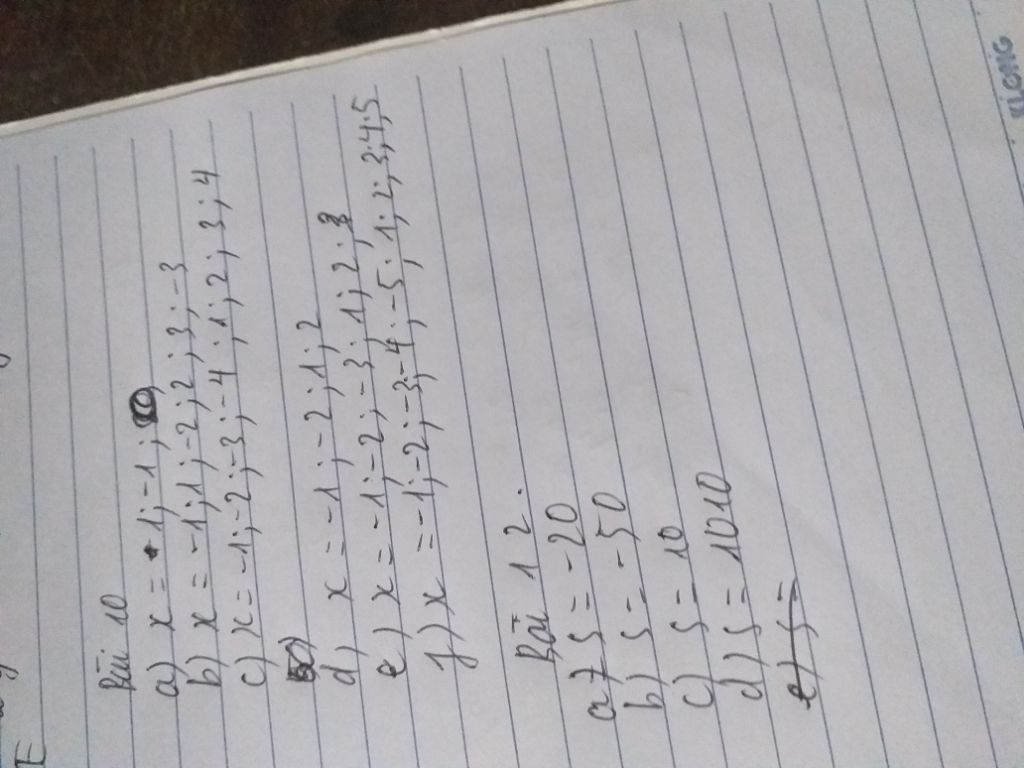 Bài 10
a) x = 1; -1;
b) x = -1; 1; -2; 2; 3; -3
c) x = -1; -2; -3; -4; 1; 2; 3; 4
d) x = -1; -2; 1; 2
e) x = -1; -2; -3; 1; 2; 3
f) x = -1; -2; -3; -4; -5; 1; 2; 3; 4; 5
Bài 12.
a) S = -20
b) S = -50
c) S = 10
d) S = 1010
e) S =